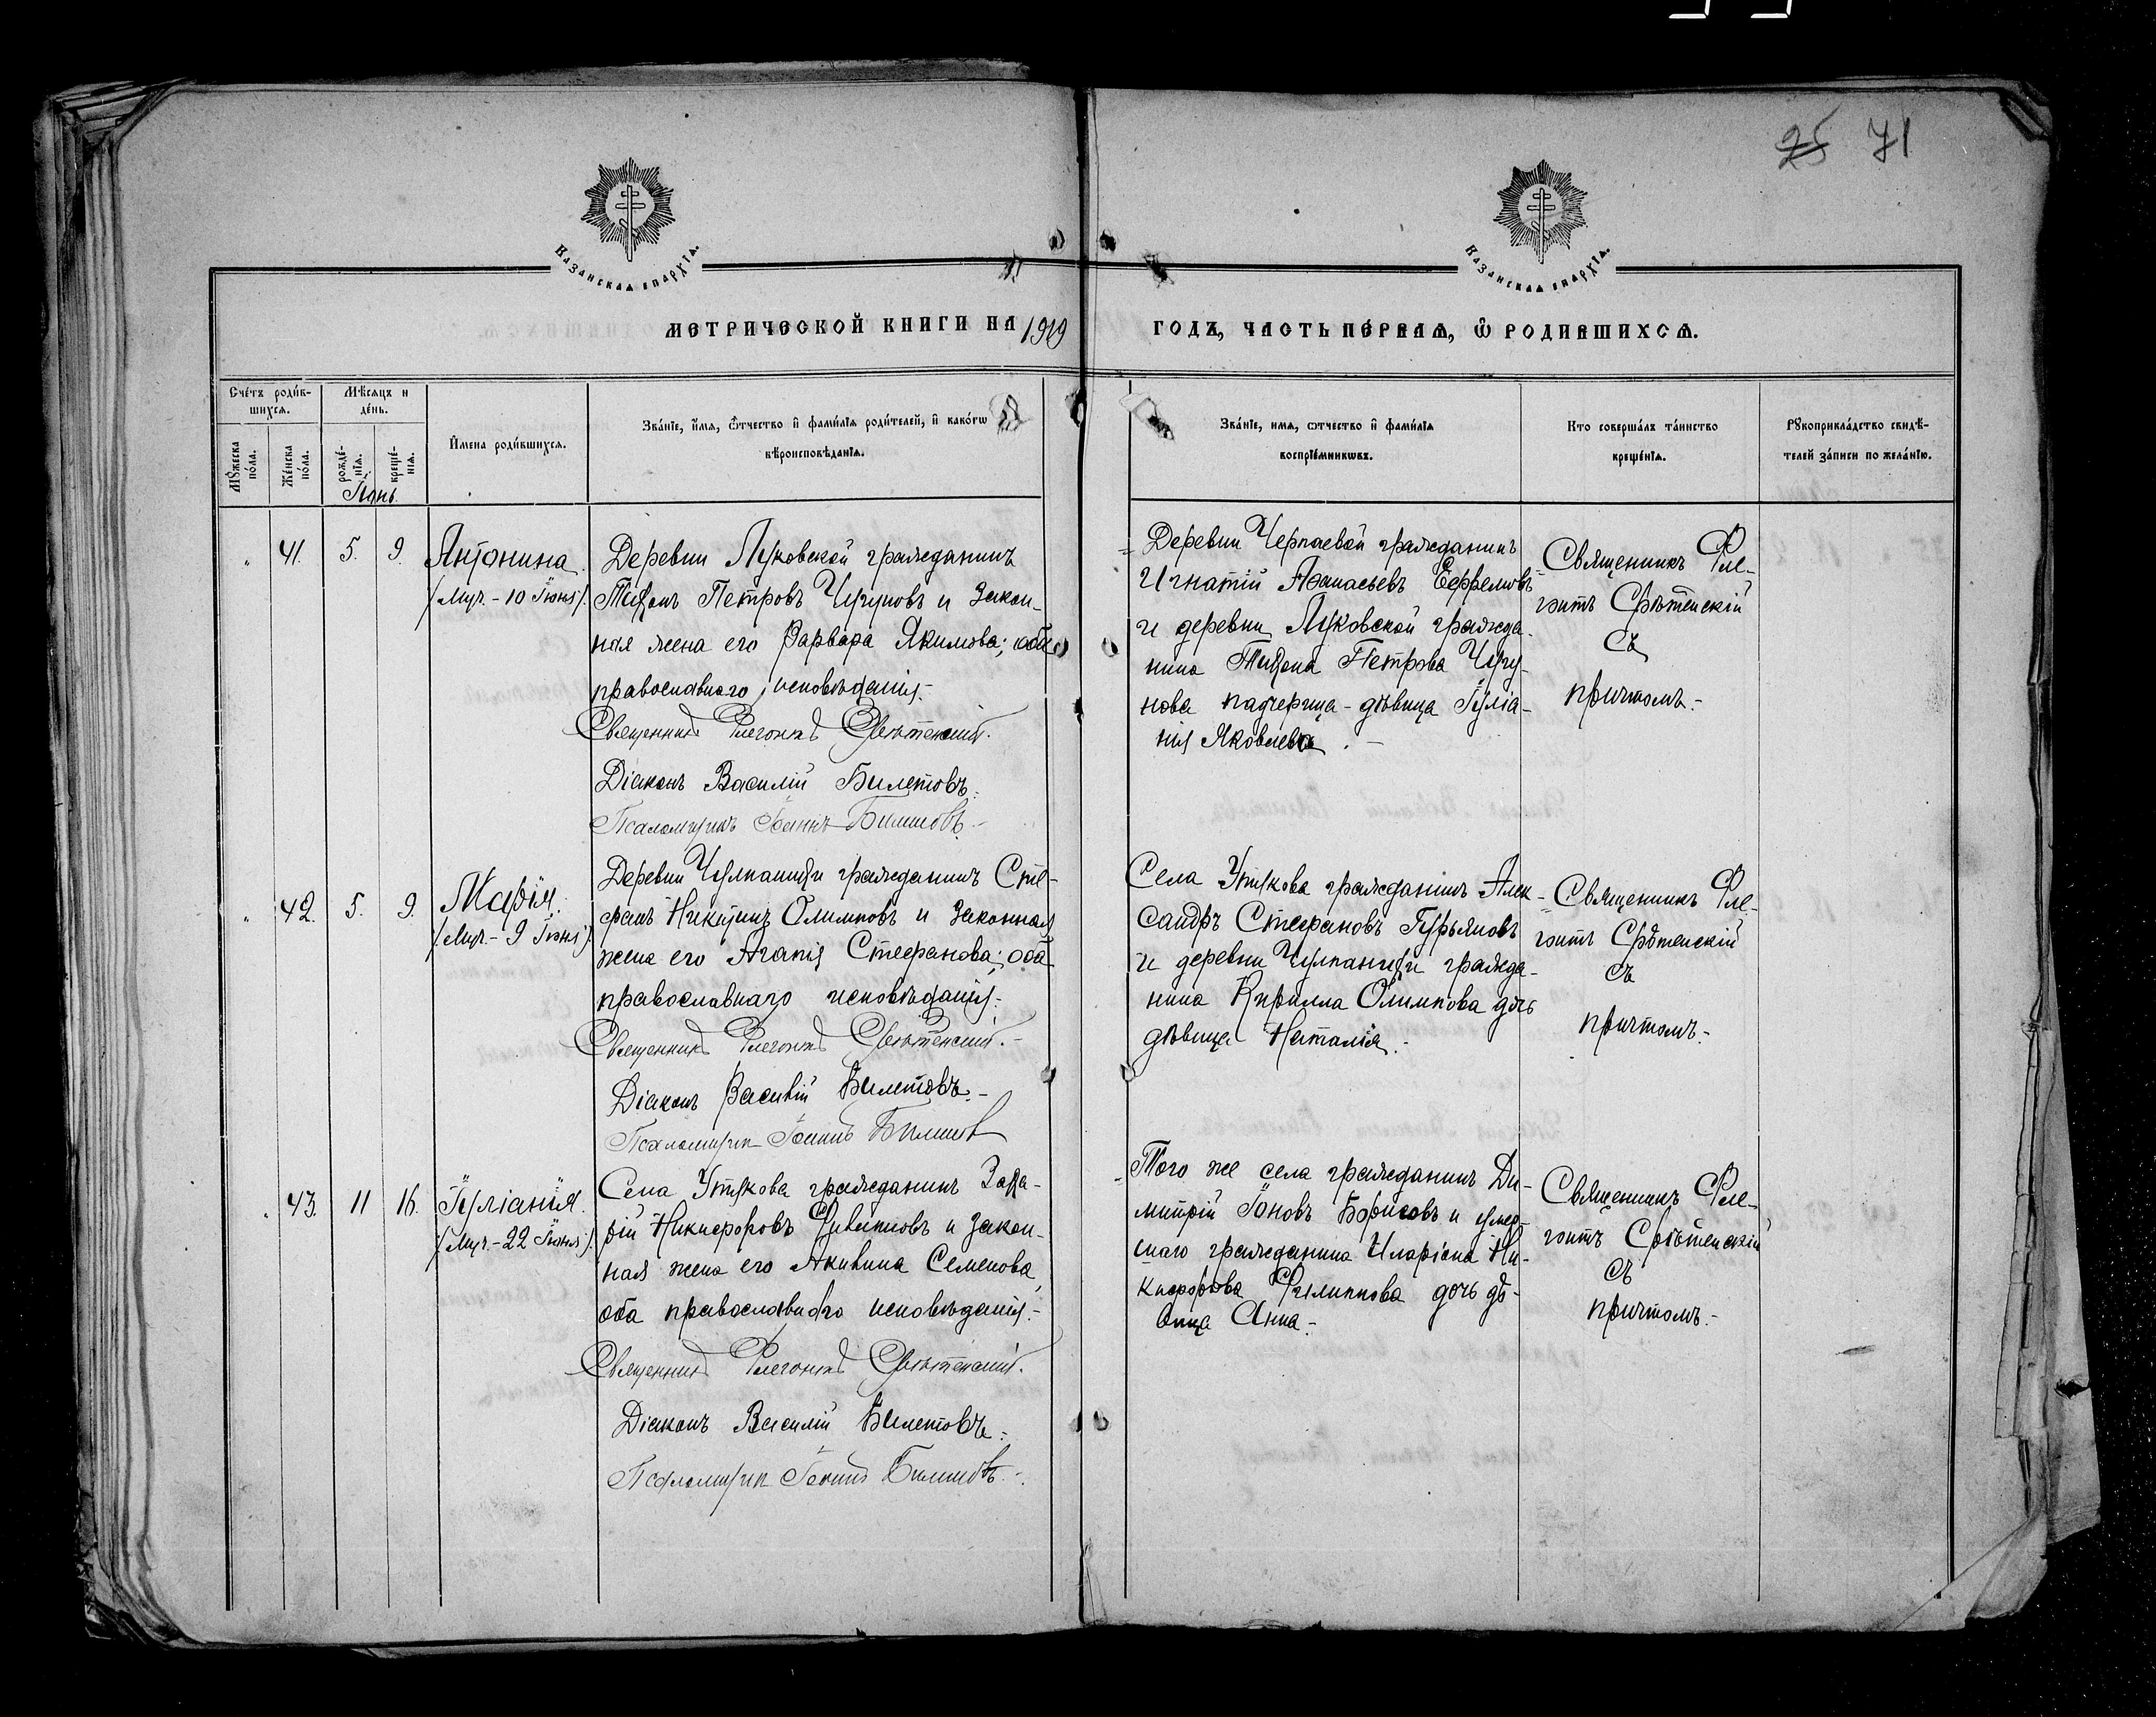 25 71
Казанская епархія.
Казанская епархія.
МЕТРИЧЕСКОЙ КНИГИ НА 1919
ГОДЪ, ЧАСТЬ ПЕРВАЯ, Ѽ РОДИВШИХСѦ.
Счéтъ роди́вшихсѧ.
Мꙋ́жеска по́ла.
Же́нска по́ла.
Мѣ́сѧцъ и де́нь.
рожде́нїѧ.
креще́нїѧ.
И҆мена роди́вшихсѧ.
Зва́нїе, и҆́мѧ, ѻ҆́тчество и҆ фами́лїѧ роди́телей, и҆ како́гѡ
вѣроисповѣ́данїѧ.
Зва́нїе, имѧ, ѻтчество и҆ фами́лїѧ
воспрїе́мникѡвъ.
Кто соверша́лъ та́инство
креще́нїѧ.
Рꙋкоприкла́дство свидѣ́-
телей за́писи по жела́нїю.
Іюнь.
" 41. 5. 9. Антонина.
(Муч. - 10 Іюня).
Деревни Луковской гражданинъ
Тихонъ Петровъ Чугуновъ и закон-
ная жена его Варвара Якимова; оба
православнаго исповѣданія.-
Священникъ Флегонтъ Срѣтенскій.
Діаконъ Василій Билетовъ.
Псаломщикъ Іоаннъ
Деревни Черпаевой гражданинъ
Игнатій Аѳанасьевъ Ефремовъ
и деревни Луковской гражда-
нина Тихона Петрова Чугу-
нова падчерица - дѣвица Іуліа-
нія Яковлева. -
Священникъ Фле-
гонтъ Срѣтенскій
съ
причтомъ.-
" 42. 5. 9. Марія.
(Муч. - 9 Іюня).
Деревни Чулпанихи гражданинъ Сте-
фанъ Никитинъ Олимповъ и законная
жена его Агапія Стефанова; оба
православнаго исповѣданія.
Священникъ Флегонтъ Срѣтенскій.-
Діаконъ Василій Билетовъ.-
Псаломщик Іоаннъ
Села Утякова гражданинъ Алек-
сандръ Стефановъ Гурьяновъ
и деревни Чулпанихи гражда-
нина Кирилла Олимпова дочь
дѣвица Наталія.-
Священникъ Фле-
гонтъ Срѣтенскій
съ
причтомъ.-
" 43. 11 16. Іуліанія.
(Муч. - 22 Іюня).
Села Утякова гражданинъ Заха-
рій Никифоровъ и закон-
ная жена его Акилина Семенова,
оба православнаго исповѣданія.-
Священникъ Флегонтъ Срѣтенскій.
Діаконъ Василій Билетовъ.
Псаломщик Іоаннъ
Того же села гражданинъ Ди-
митрій Іоновъ Борисовъ и умер-
шаго гражданина Иларіона Ни-
кифорова Филиппова дочь дѣ-
вица Анна.-
Священникъ Фле-
гонтъ Срѣтенскій
съ
причтомъ.-